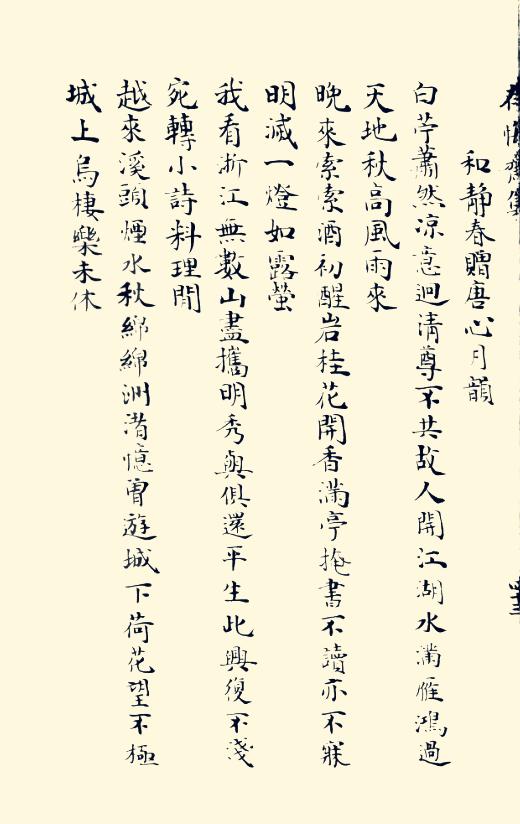 和靜春贈唐心月韻
白苧蕭然凉意迥清尊不共故人開江湖水滿雁鴻過
天地秋高風雨來
晚來索索酒初醒岩桂花開香滿亭掩書不讀亦不寐
明滅一燈如露螢
我看浙江無數山盡攜明秀與俱還平生此興復不淺
宛轉小詩料理閒
越來溪頭煙水秋綿綿洲渚憶曽遊城下荷花望不極
城上烏棲樂未休